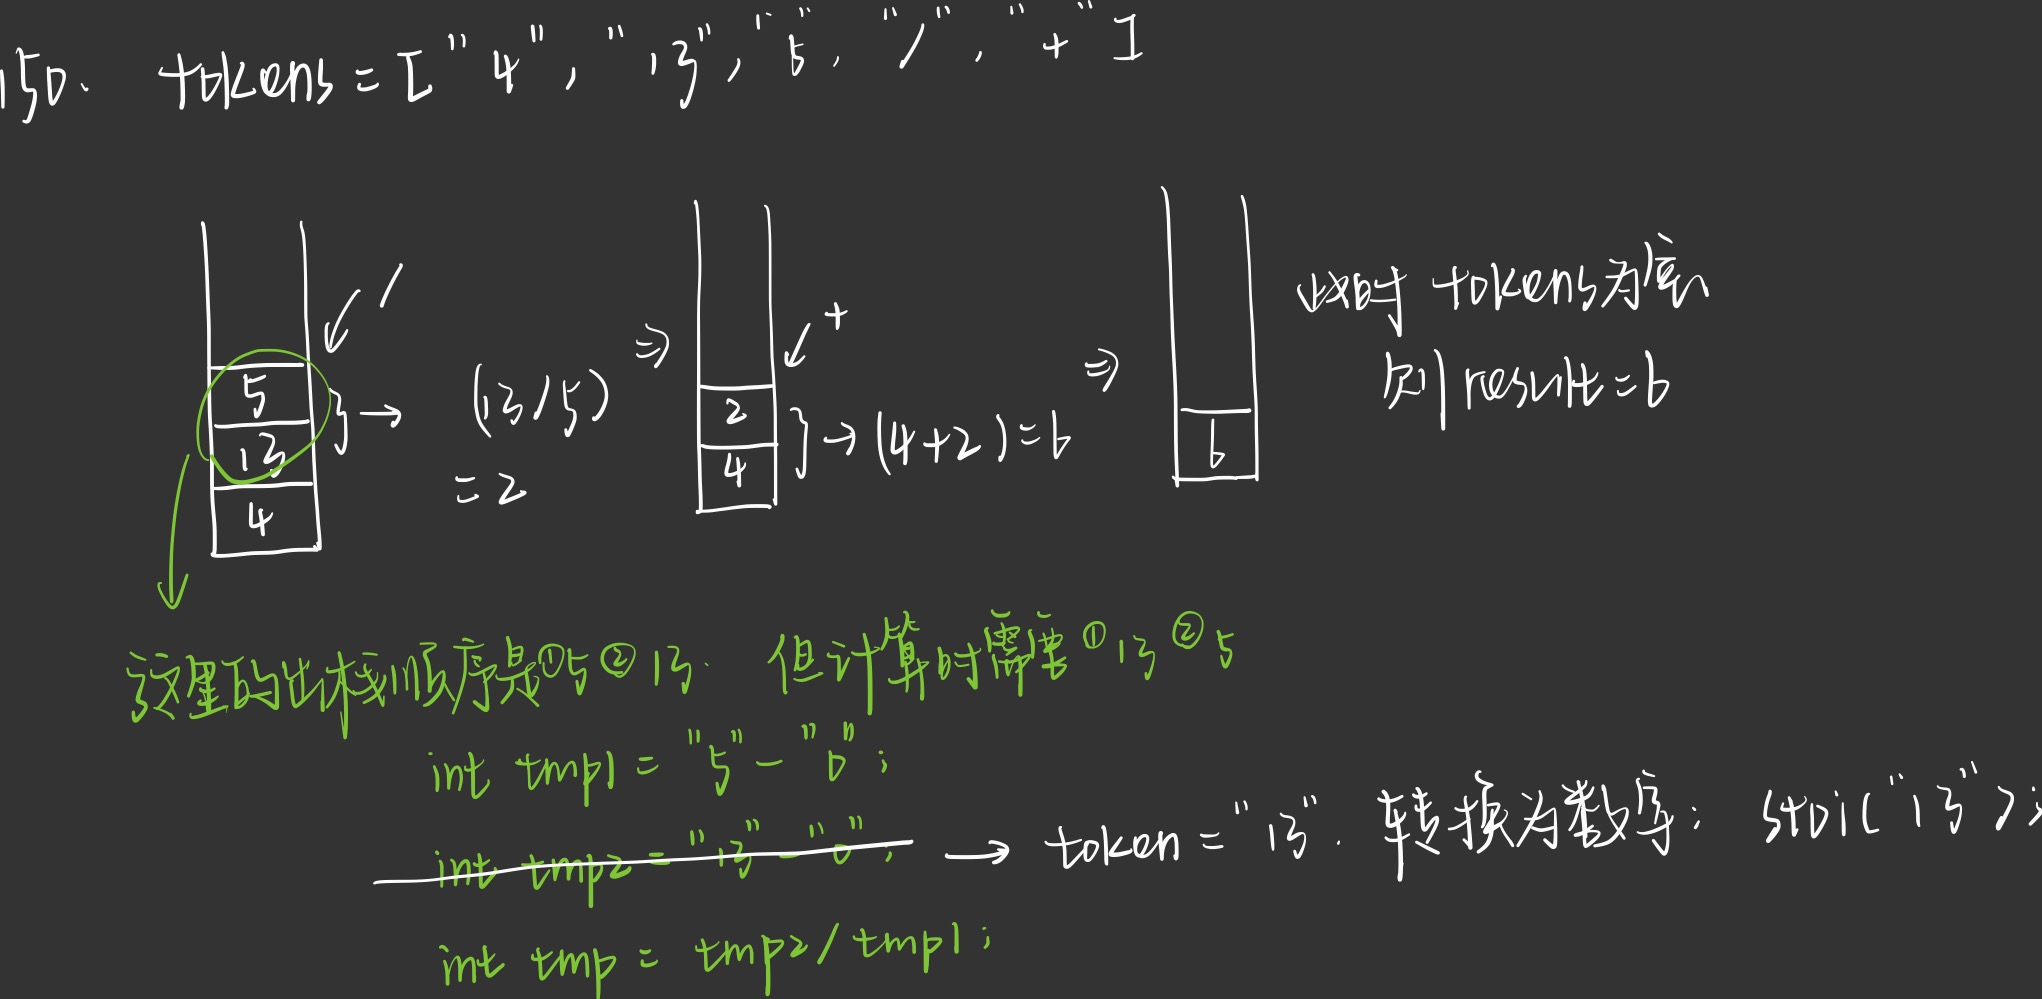 150. tokens = ["4", "13", "5, "/", "+"]
/
+
此时 tokens为底
5
13
4
(13/5)
= 2
2
4
(4+2)=6
6
则 result=6
这里的出栈顺序是①5②13. 但计算时需要①13②5
int tmp1 = "5" - "0";
int tmp2 = "13" - "0"; → token = "13". 转换为数字: stoi("13");
int tmp = tmp2/tmp1;